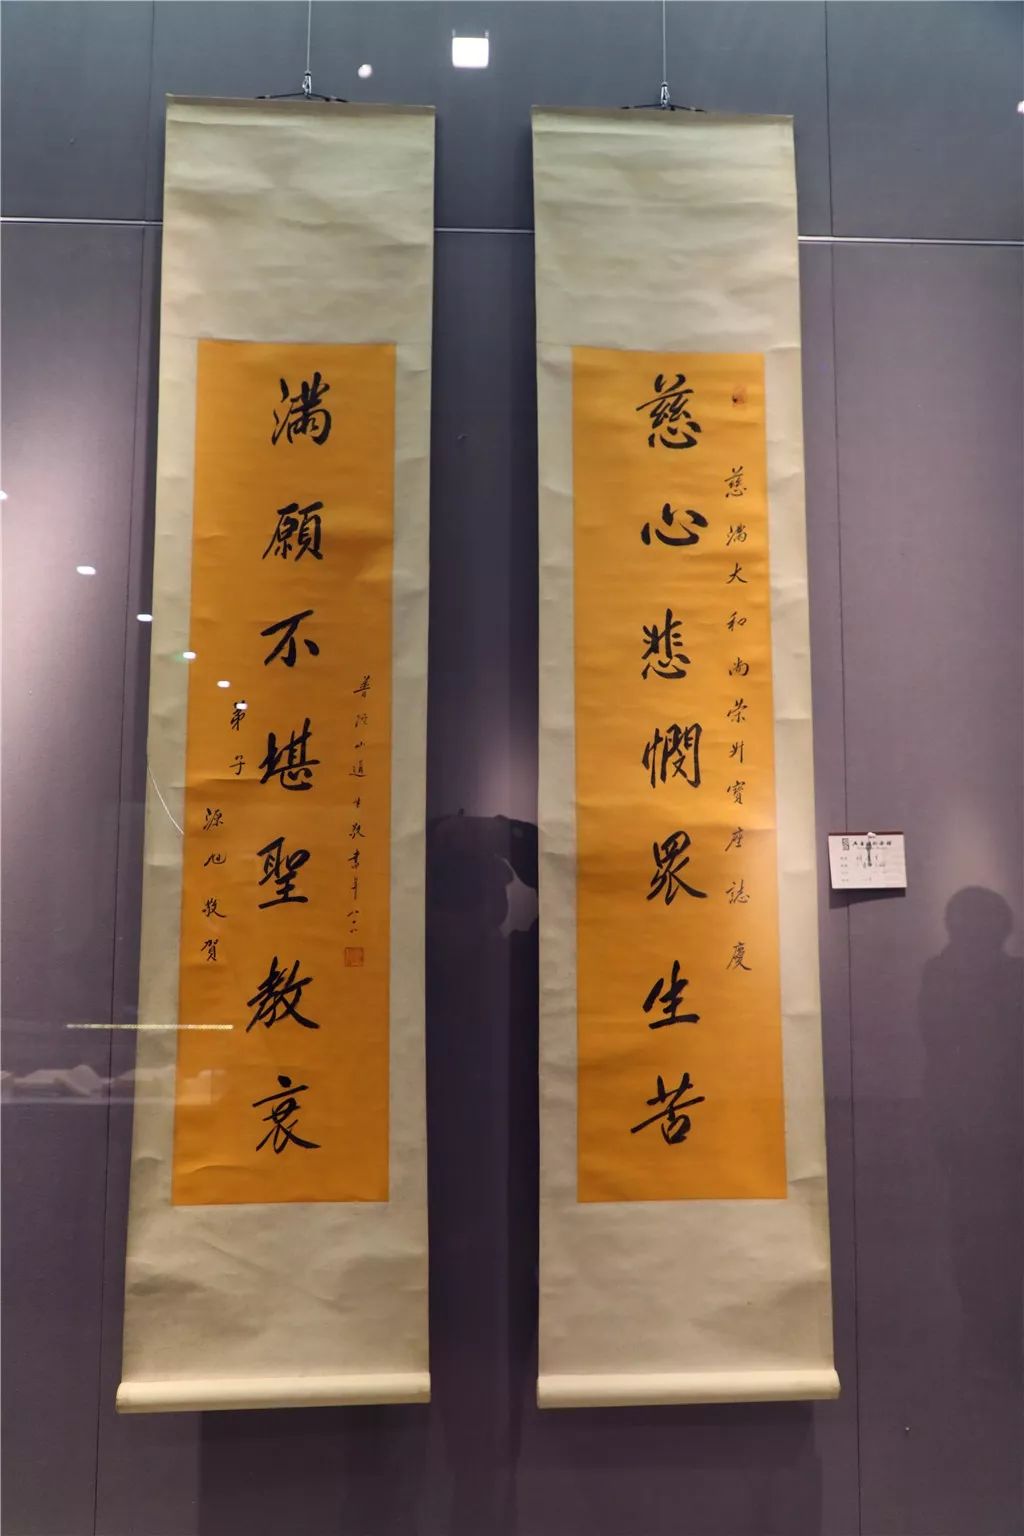 慈滿大和尚榮升寶座誌慶
慈心悲憫眾生苦
普陀山道生敬書年八十八
滿願不堪聖教衰
弟子
源旭敬賀